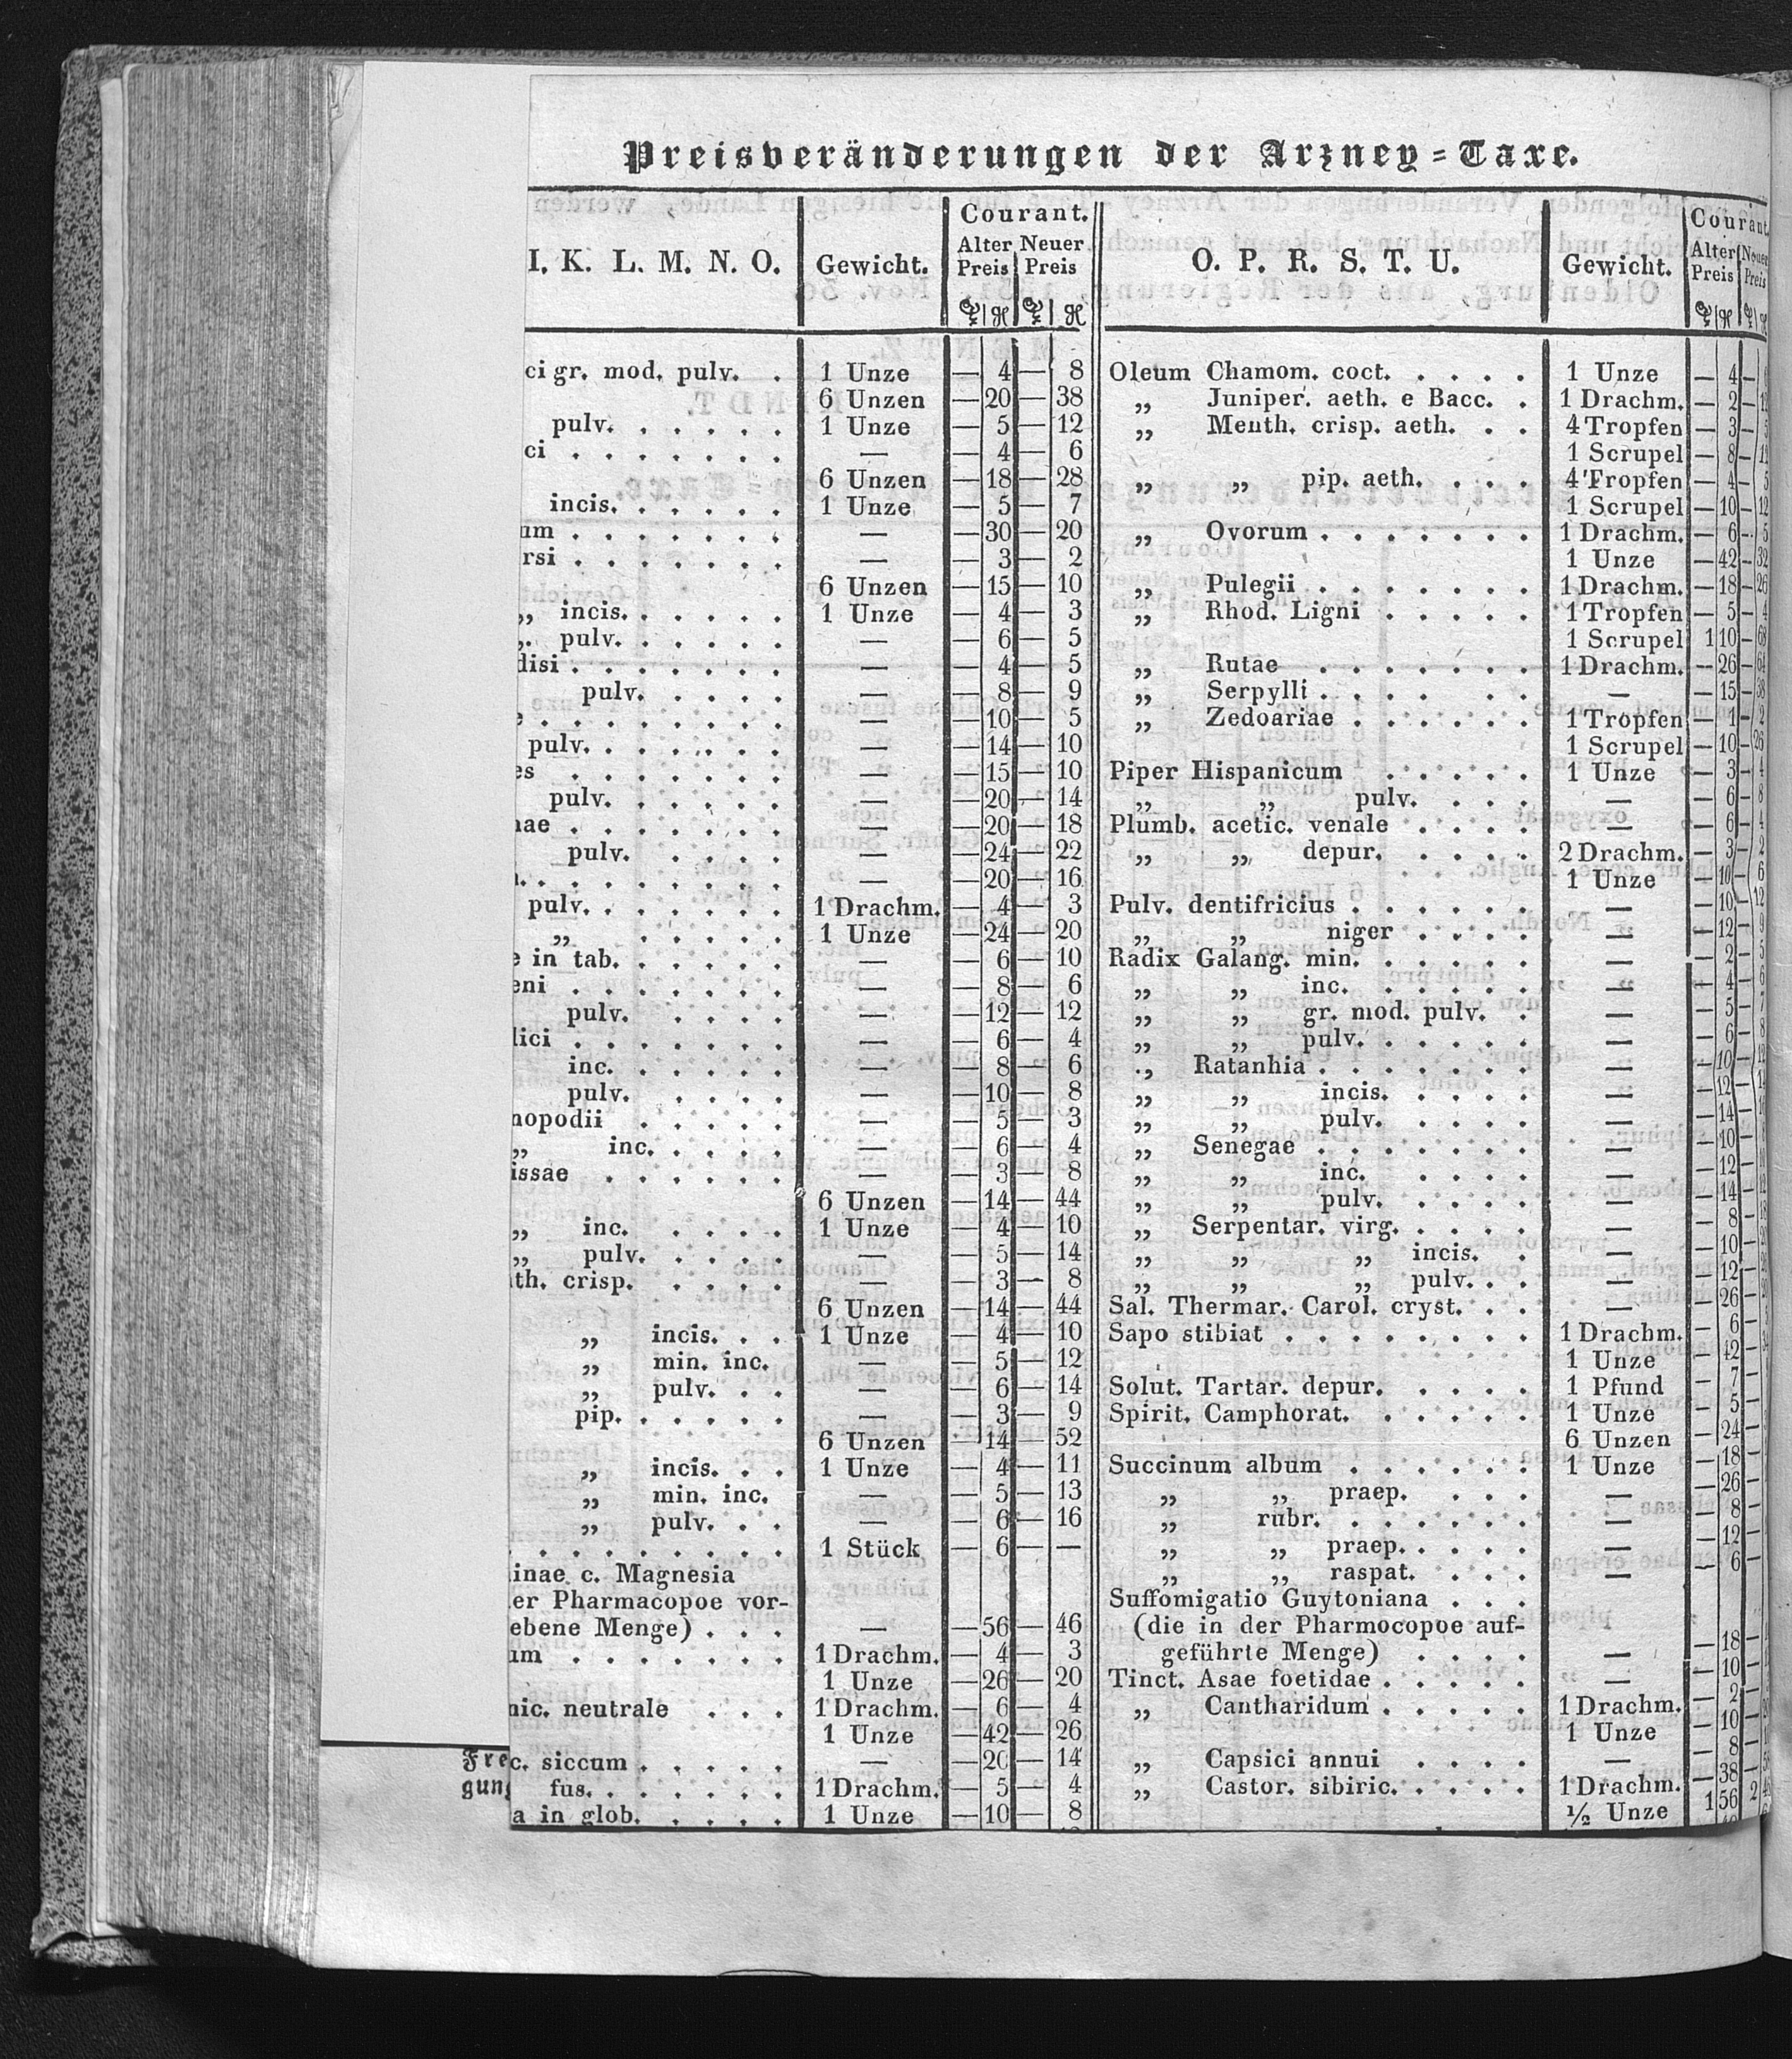 Preisveränderungen der Arzney=Taxe.
I. K. L. M. N. O. Gewicht. Courant.
Alter Preis Neuer Preis
ci gr. mod. pulv. . 1 Unze — 4 — 8
6 Unzen — 20 — 38
pulv. . . . . . 1 Unze — 5 — 12
ci . . . . . . . — — 4 — 6
6 Unzen — 18 — 28
incis. . . . . . 1 Unze — 5 — 7
um . . . . . . . — — 30 — 20
rsi . . . . . . . — — 3 — 2
6 Unzen — 15 — 10
„ incis. . . . . . 1 Unze — 4 — 3
„ pulv. . . . . . — — 6 — 5
disi . . . . . . . — — 4 — 5
pulv. . . . . — — 8 — 9
e . . . . . . . . — — 10 — 5
pulv. . . . . . . — — 14 — 10
es . . . . . . . — — 15 — 10
pulv. . . . . . — — 20 — 14
nae . . . . . . . — — 20 — 18
pulv. . . . . — — 24 — 22
. . . . . . . . — — 20 — 16
pulv. . . . . . . 1 Drachm. — 4 — 3
„ . . . . . 1 Unze — 24 — 20
e in tab. . . . . . — — 6 — 10
eni . . . . . . . — — 8 — 6
pulv. . . . . — — 12 — 12
lici . . . . . . . — — 6 — 4
inc. . . . . . — — 8 — 6
pulv. . . . . — — 10 — 8
nopodii . . . . . — — 5 — 3
„ inc. . . . . — — 6 — 4
issae . . . . . . — — 3 — 8
6 Unzen — 14 — 44
„ inc. . . . . 1 Unze — 4 — 10
„ pulv. . . . . — — 5 — 14
th. crisp. . . . . — — 3 — 8
6 Unzen — 14 — 44
„ incis. . . 1 Unze — 4 — 10
„ min. inc. — — 5 — 12
„ pulv. . . — — 6 — 14
pip. . . . . . — — 3 — 9
6 Unzen — 14 — 52
„ incis. . . 1 Unze — 4 — 11
„ min. inc. — — 5 — 13
„ pulv. . . — — 6 — 16
. . . . . . . . 1 Stück — 6 — —
inae c. Magnesia
er Pharmacopoe vor-
ebene Menge) . . . — — 56 — 46
um . . . . . . . 1 Drachm. — 4 — 3
1 Unze — 26 — 20
nic. neutrale . . . 1 Drachm. — 6 — 4
1 Unze — 42 — 26
c. siccum . . . . . — — 20 — 14
fus. . . . . . . 1 Drachm. — 5 — 4
a in glob. . . . . 1 Unze — 10 — 8
Fre
gun
O. P. R. S. T. U. Gewicht. Courant.
Alter Preis Neuer Preis
Oleum Chamom. coct. . . . . 1 Unze — 4 —
„ Juniper. aeth. e Bacc. . 1 Drachm. — 2 —
„ Menth. crisp. aeth. . . 4 Tropfen — 3 — 5
1 Scrupel — 8 —
„ „ pip. aeth. . . . 4 Tropfen — 4 — 5
1 Scrupel — 10 — 12
„ Ovorum . . . . . . . 1 Drachm. — 6 — 5
1 Unze — 42 — 32
„ Pulegii . . . . . . . 1 Drachm. — 18 — 26
„ Rhod. Ligni . . . . . 1 Tropfen — 5 — 4
1 Scrupel 1 10 — 68
„ Rutae . . . . . . . 1 Drachm. — 26 —
„ Serpylli . . . . . . . — — 15 — 38
„ Zedoariae . . . . . . 1 Tropfen — 1 — 2
1 Scrupel — 10 — 26
Piper Hispanicum . . . . . 1 Unze — 3 — 4
„ „ pulv. . . . — — 6 — 8
Plumb. acetic. venale . . . . — — 6 — 4
„ „ depur. . . . . 2 Drachm. — 3 — 2
1 Unze — 10 — 6
Pulv. dentifricius . . . . . . — — 10 — 12
„ „ niger . . . . — — 12 — 9
Radix Galang. min. . . . . . — — 2 — 5
„ „ inc. . . . . . — — 4 — 6
„ „ gr. mod. pulv. . — — 5 — 7
„ „ pulv. . . . . . — — 6 — 8
„ Ratanhia . . . . . . . — — 10 —
„ „ incis. . . . . — — 12 —
„ „ pulv. . . . . — — 14 —
„ Senegae . . . . . . . — — 10 —
„ „ inc. . . . . — — 12 —
„ „ pulv. . . . . — — 14 —
„ Serpentar. virg. . . . . — — 8 —
„ „ „ incis. . — — 10 —
„ „ „ pulv. . . — — 12 —
Sal. Thermar. Carol. cryst. . . . — — 26 —
Sapo stibiat . . . . . . . . 1 Drachm. — 6 —
1 Unze — 42 —
Solut. Tartar. depur. . . . . 1 Pfund — 7 —
Spirit. Camphorat. . . . . . 1 Unze — 5 —
6 Unzen — 24 —
Succinum album . . . . . . 1 Unze — 18 —
„ „ praep. . . . — — 26 —
„ rubr. . . . . . . — — 8 —
„ „ praep. . . . . — — 12 —
„ „ raspat. . . . — — 6 —
Suffomigatio Guytoniana . . .
(die in der Pharmocopoe auf-
geführte Menge) . . . . — — 18 —
Tinct. Asae foetidae . . . . . — — 10 —
„ Cantharidum . . . . . 1 Drachm. — 2 —
1 Unze — 10 —
„ Capsici annui . . . . — — 8 —
„ Castor. sibiric. . . . . 1 Drachm. — 38 —
½ Unze 1 56 2